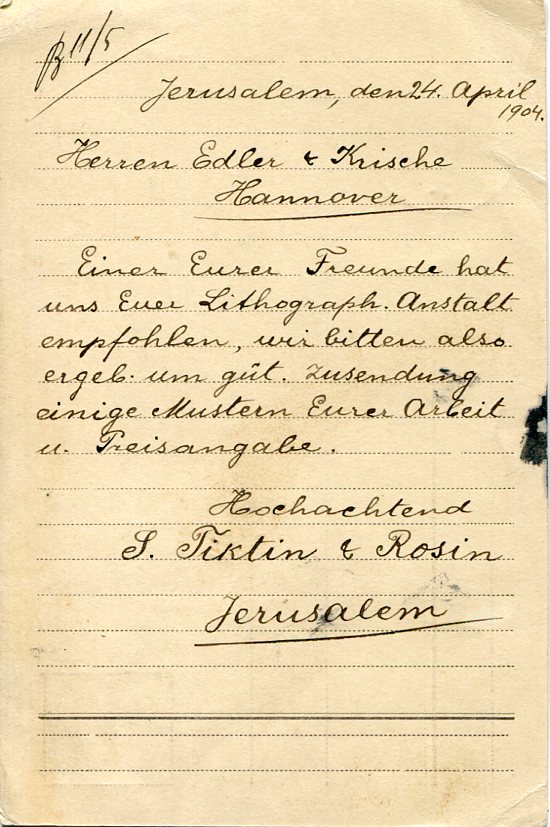 B 11/5
Jerusalem, den 24. April
1904.
Herren Edler & Krische
Hannover
Einer Eurer Freunde hat
uns Euer Lithograph. Anstalt
empfohlen, wir bitten also
ergeb. um güt. Zusendung
einige Mustern Eurer Arbeit
u. Preisangabe.
Hochachtend
S. Tiktin & Rosin
Jerusalem